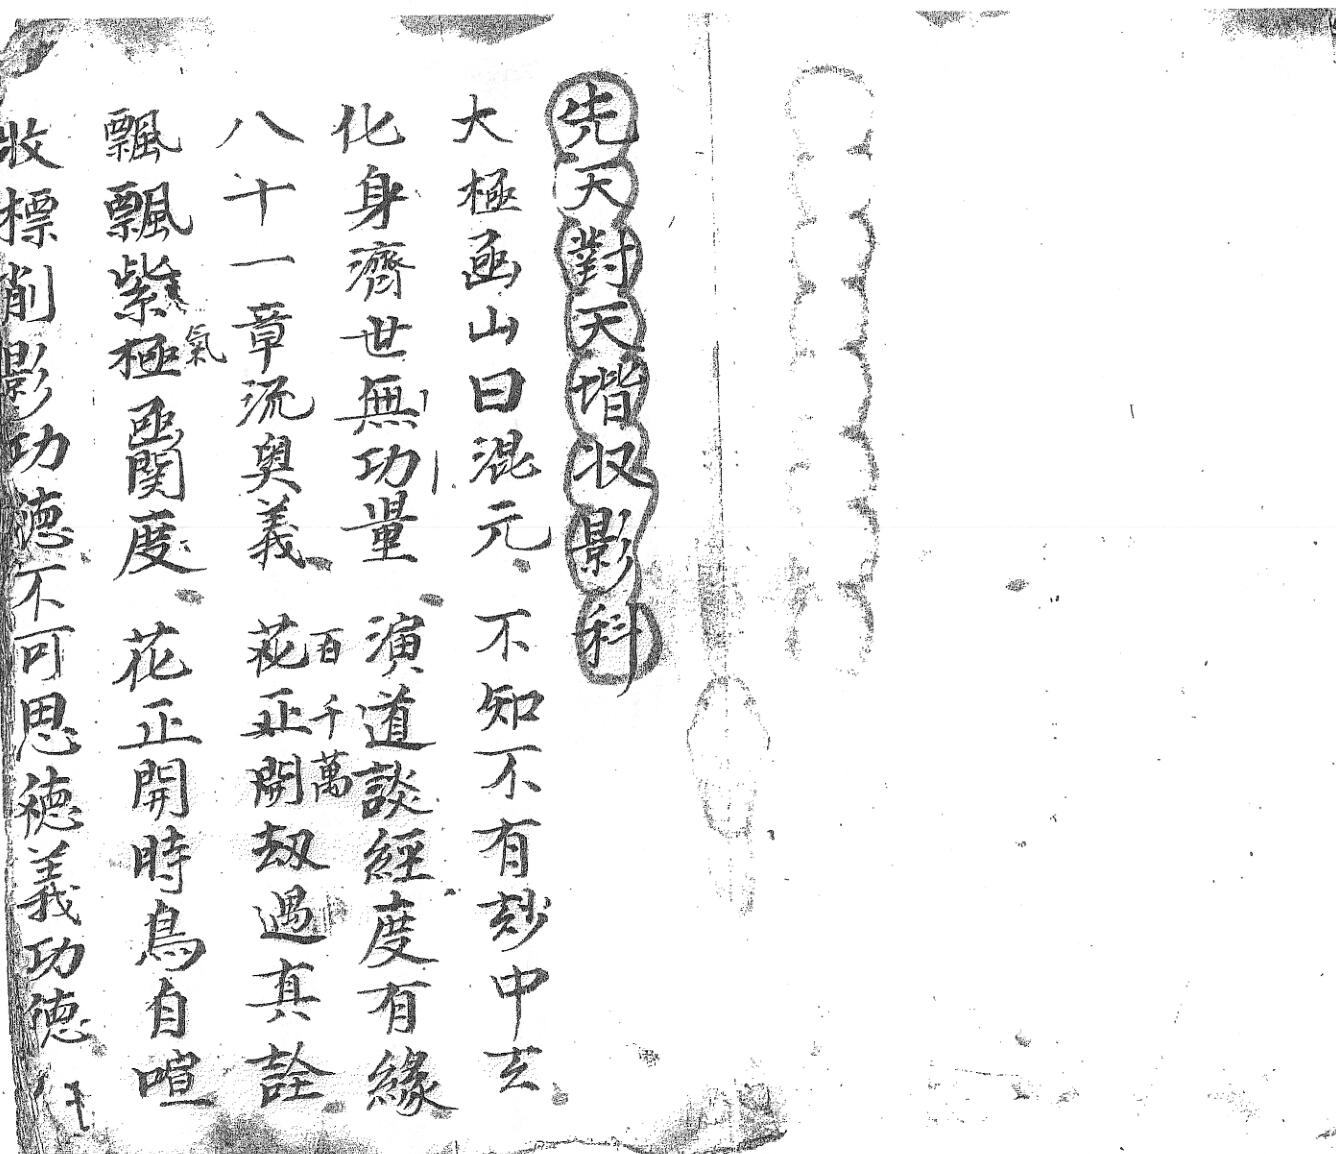 先天對天堦収影科
大極函山曰混元 不知不有玅中玄
化身濟世無功量 演道談經度有緣
八十一章流奧義 百千萬劫遇真詮
花正開
飄飄紫極函関度 花正開時鳥自喧
氣
收標削影功德不可思德義功德